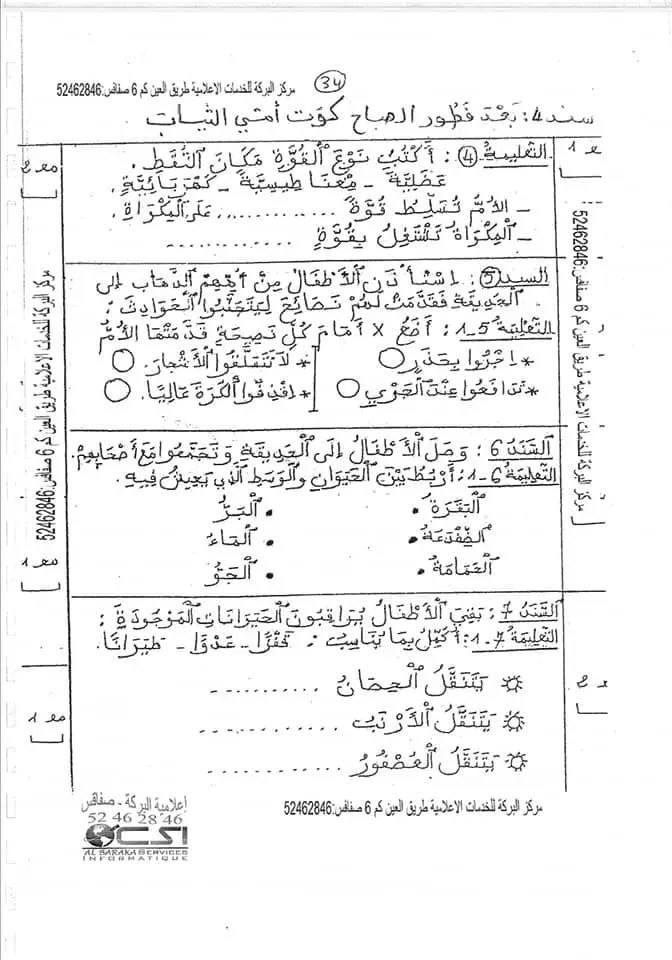 34
مركز البركة للخدمات الاعلامية طريق العين كم 6 صفاقس:52462846
سند 4: بَعْدَ فَطُور الصباح كَوَت أمّي الثياب
مع 1
مع 2
التعليمة 4: أَكْتُبُ نَوْعَ الْقُوَّةِ مَكَانَ النُّقَطِ.
عَضَلِيَّة - مِغْنَاطِيسِيَّة - كَهْرَبَائِيَّة.
- الأُمُّ تُسَلِّطُ قُوَّةً ............ عَلَى الْمِكْوَاةِ.
- الْمِكْوَاةُ تَشْتَغِلُ بِقُوَّةٍ ............
السند 5: اِسْتَأْذَنَ الْأَطْفَالُ مِنْ أُمِّهِمِ الذَّهَابَ إلى
الْحَدِيقَةِ فَقَدَّمَتْ لَهُمْ نَصَائِحَ لِيَتَجَنَّبُوا الْحَوَادِثَ:
التعليمة 5-1: أَضَعُ x أَمَامَ كُلِّ نَصِيحَةٍ قَدَّمَتْهَا الأُمُّ
* اِجْرُوا بِحَذَرٍ
* لاَ تَتَسَلَّقُوا الْأَشْجَارَ.
* تَدَافَعُوا عِنْدَ الْجَرْيِ
* اقْذِفُوا الْكُرَةَ عَالِيًا.
السَّنَدُ 6: وَصَلَ الْأَطْفَالُ إلَى الْحَدِيقَةِ وَتَجَمَّعُوا مَعَ أَصْحَابِهِمْ.
التعليمة 6-1: أَرْبُطُ بَيْنَ الْحَيَوَانِ وَالْوَسَطِ الَّذِي يَعِيشُ فِيهِ.
الْبَقَرَةُ • • الْبَرُّ
الضِّفْدَعَةُ • • الْمَاءُ
الْحَمَامَةُ • • الْجَوُّ
مع 1
السَّنَدُ 7: بَقِيَ الْأَطْفَالُ يُرَاقِبُونَ الْحَيَوَانَاتِ الْمَوْجُودَةَ:
التعليمة 7-1: أُكْمِلُ بِمَا يُنَاسِبُ: قَفْزًا - عَدْوًا - طَيَرَانًا.
يَتَنَقَّلُ الْحِصَانُ ............
يَتَنَقَّلُ الْأَرْنَبُ ............
يَتَنَقَّلُ الْعُصْفُورُ ............
مع 2
مع 1
مركز البركة للخدمات الاعلامية طريق العين كم 6 صفاقس:52462846
مركز البركة للخدمات الاعلامية طريق العين كم 6 صفاقس:52462846
مركز البركة للخدمات الاعلامية طريق العين كم 6 صفاقس:52462846
إعلامية البركة - صفاقس
52 46 28 46
CSI
AL BARAKA SERVICES
INFORMATIQUE